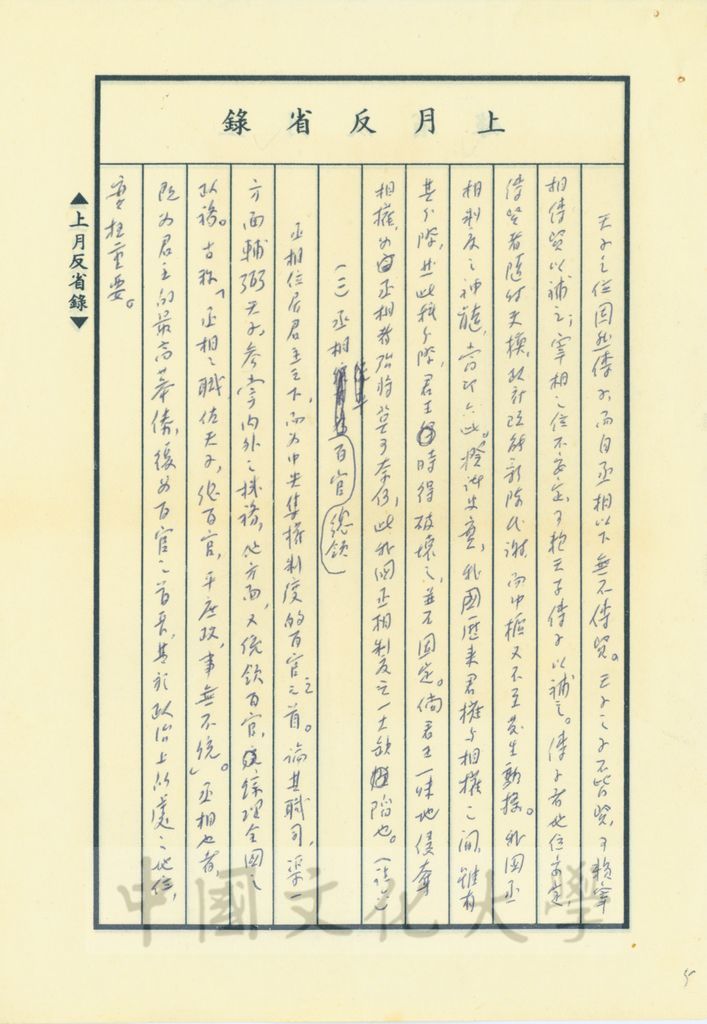 上月反省錄
天子之位固然傳子,而自丞相以下無不傳賢。天子之子不皆賢,可賴宰
相傳賢以補之;宰相之位不安定,可賴天子傳子以補之。傳子者地位安定,
傳賢者隨時更換,政府既能新陳代謝,而中樞又不至發生動搖。我國丞
相制度之神髓,當即在此。證諸史實,我國歷來君權與相權之間,雖有
其分際,然此權分際,君主時得破壞之,並不固定。倘君主一味地侵奪
相權,為丞相者殆將莫可奈何,此我國丞相制度之一大缺陷也。(註)
(三)丞相總領百官
丞相位居君主之下,而為中央集權制度的百官之首。論其職司,渠一
方面輔弼天子,參掌內外之機務,他方面,又統領百官,綜理全國之
政務。古稱「丞相之職佐天子,總百官,平庶政,事無不統。」丞相也者,
既為君主的最高幕僚,復為百官之首長,其於政治上所處之地位,
實極重要。
▲上月反省錄▼
中國文化大學
5